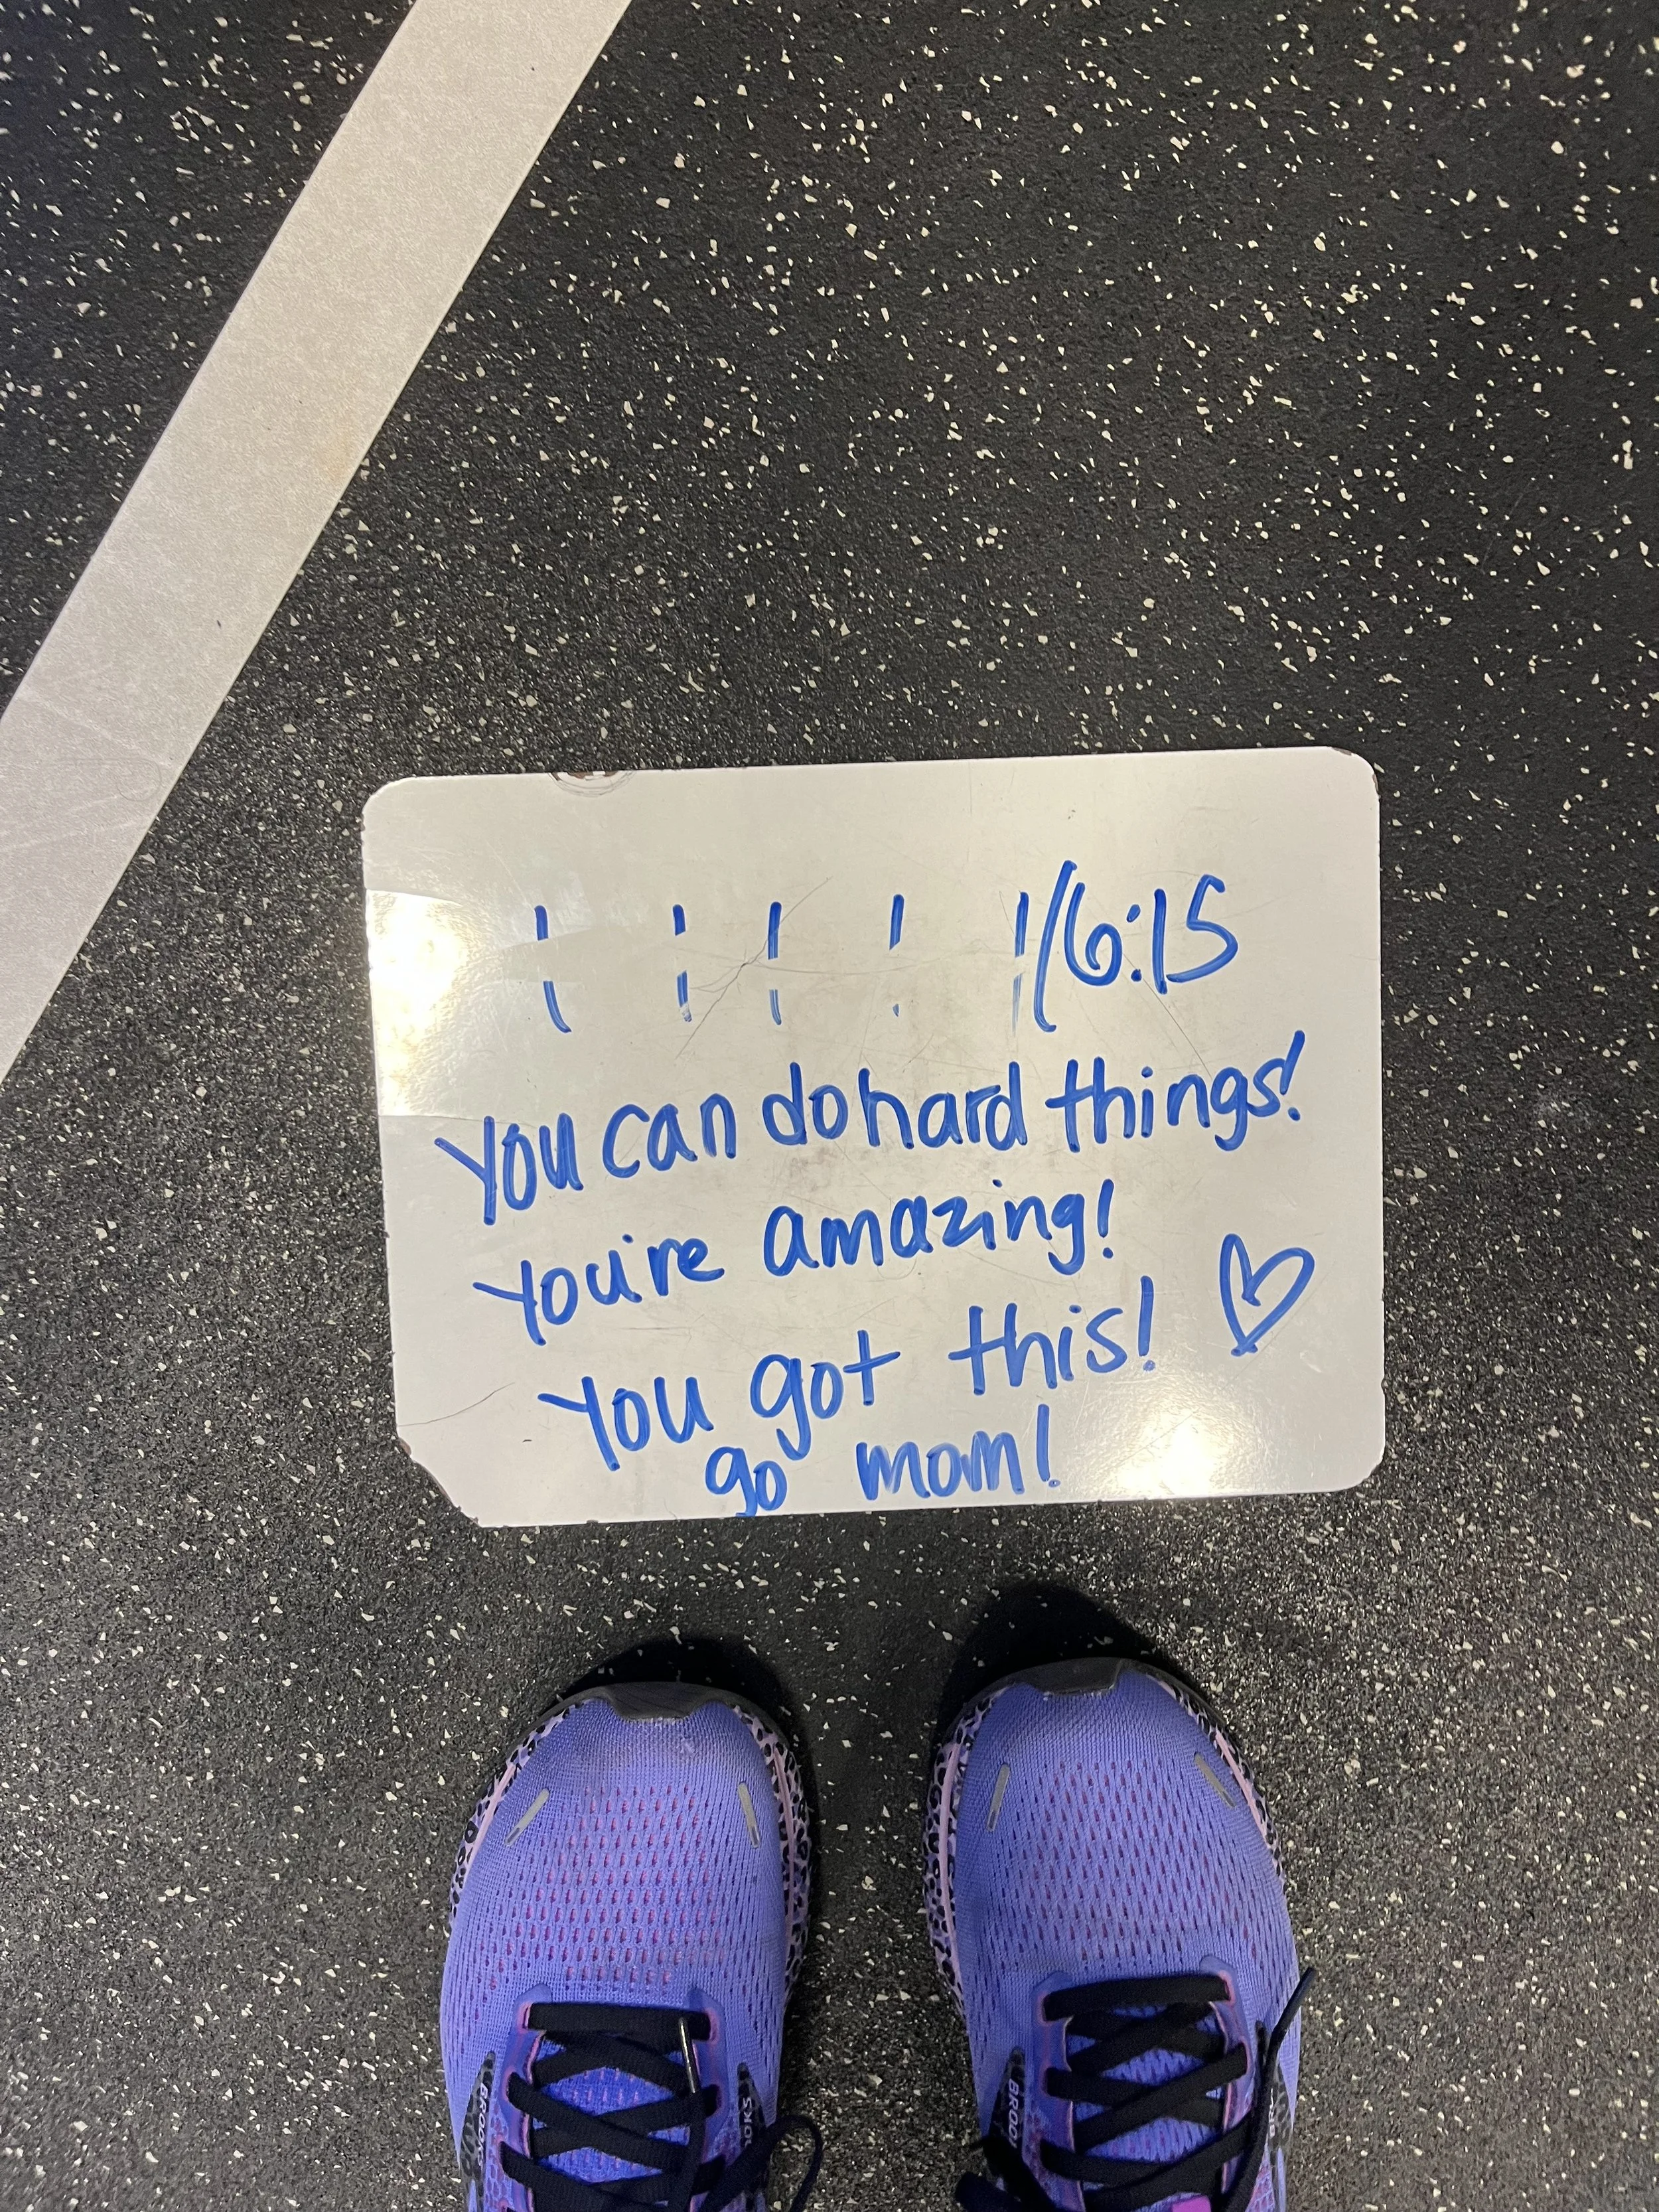 | | | | |/6:15
You can do hard things!
You're amazing!
You got this! ♡
go mom!
BROOKS